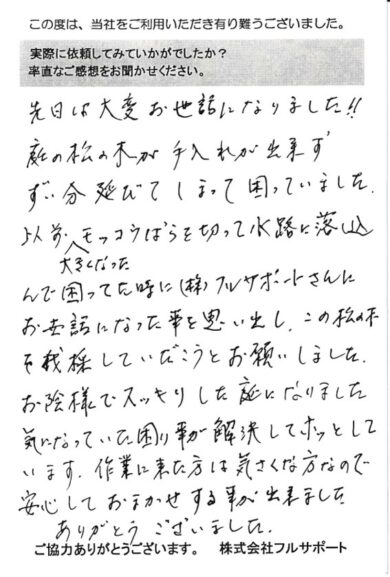 この度は、当社をご利用いただき有り難うございました。
実際に依頼してみていかがでしたか？
率直なご感想をお聞かせください。
先日は大変お世話になりました!!
庭の松の木が手入れが出来ず
ずい分延びてしまって困っていました.
以前、モッコウばらを切って水路に落し込
大きくなった
んで困ってた時に(株)フルサポートさんに
お世話になった事を思い出し、この松の木
を伐採していだこうとお願いしました.
お陰様でスッキリした庭になりました
気になっていた困り事が解決してホッとして
います. 作業に来た方は気さくな方なので
安心しておまかせする事が出来ました
ありがとうございました.
ご協力ありがとうございます。 株式会社フルサポート